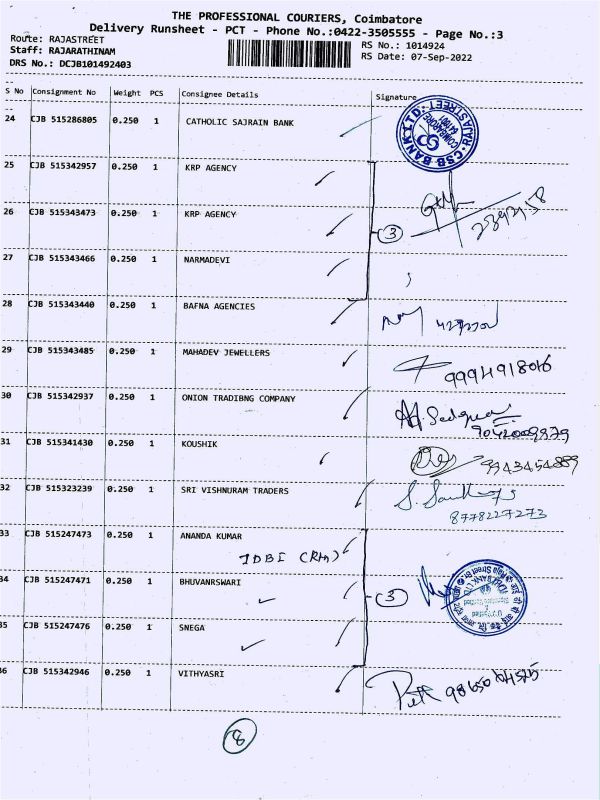 THE PROFESSIONAL COURIERS, Coimbatore
Delivery Runsheet - PCT - Phone No.:0422-3505555 - Page No.:3
Route: RAJASTREET
Staff: RAJARATHINAM
DRS No.: DCJB101492403
RS No.: 1014924
RS Date: 07-Sep-2022
S No Consignment No Weight PCS Consignee Details Signature
24 CJB 515286805 0.250 1 CATHOLIC SAJRAIN BANK
CSB BANK LTD. RAJASTREET
COIMBATORE
641001
25 CJB 515342957 0.250 1 KRP AGENCY
26 CJB 515343473 0.250 1 KRP AGENCY
3
27 CJB 515343466 0.250 1 NARMADEVI
28 CJB 515343440 0.250 1 BAFNA AGENCIES
29 CJB 515343485 0.250 1 MAHADEV JEWELLERS
9994918016
30 CJB 515342937 0.250 1 ONION TRADIBNG COMPANY
9042009979
31 CJB 515341430 0.250 1 KOUSHIK
9943454889
32 CJB 515323239 0.250 1 SRI VISHNURAM TRADERS
8778227273
33 CJB 515247473 0.250 1 ANANDA KUMAR
IDBI
34 CJB 515247471 0.250 1 BHUVANRSWARI
3
35 CJB 515247476 0.250 1 SNEGA
36 CJB 515342946 0.250 1 VITHYASRI
8